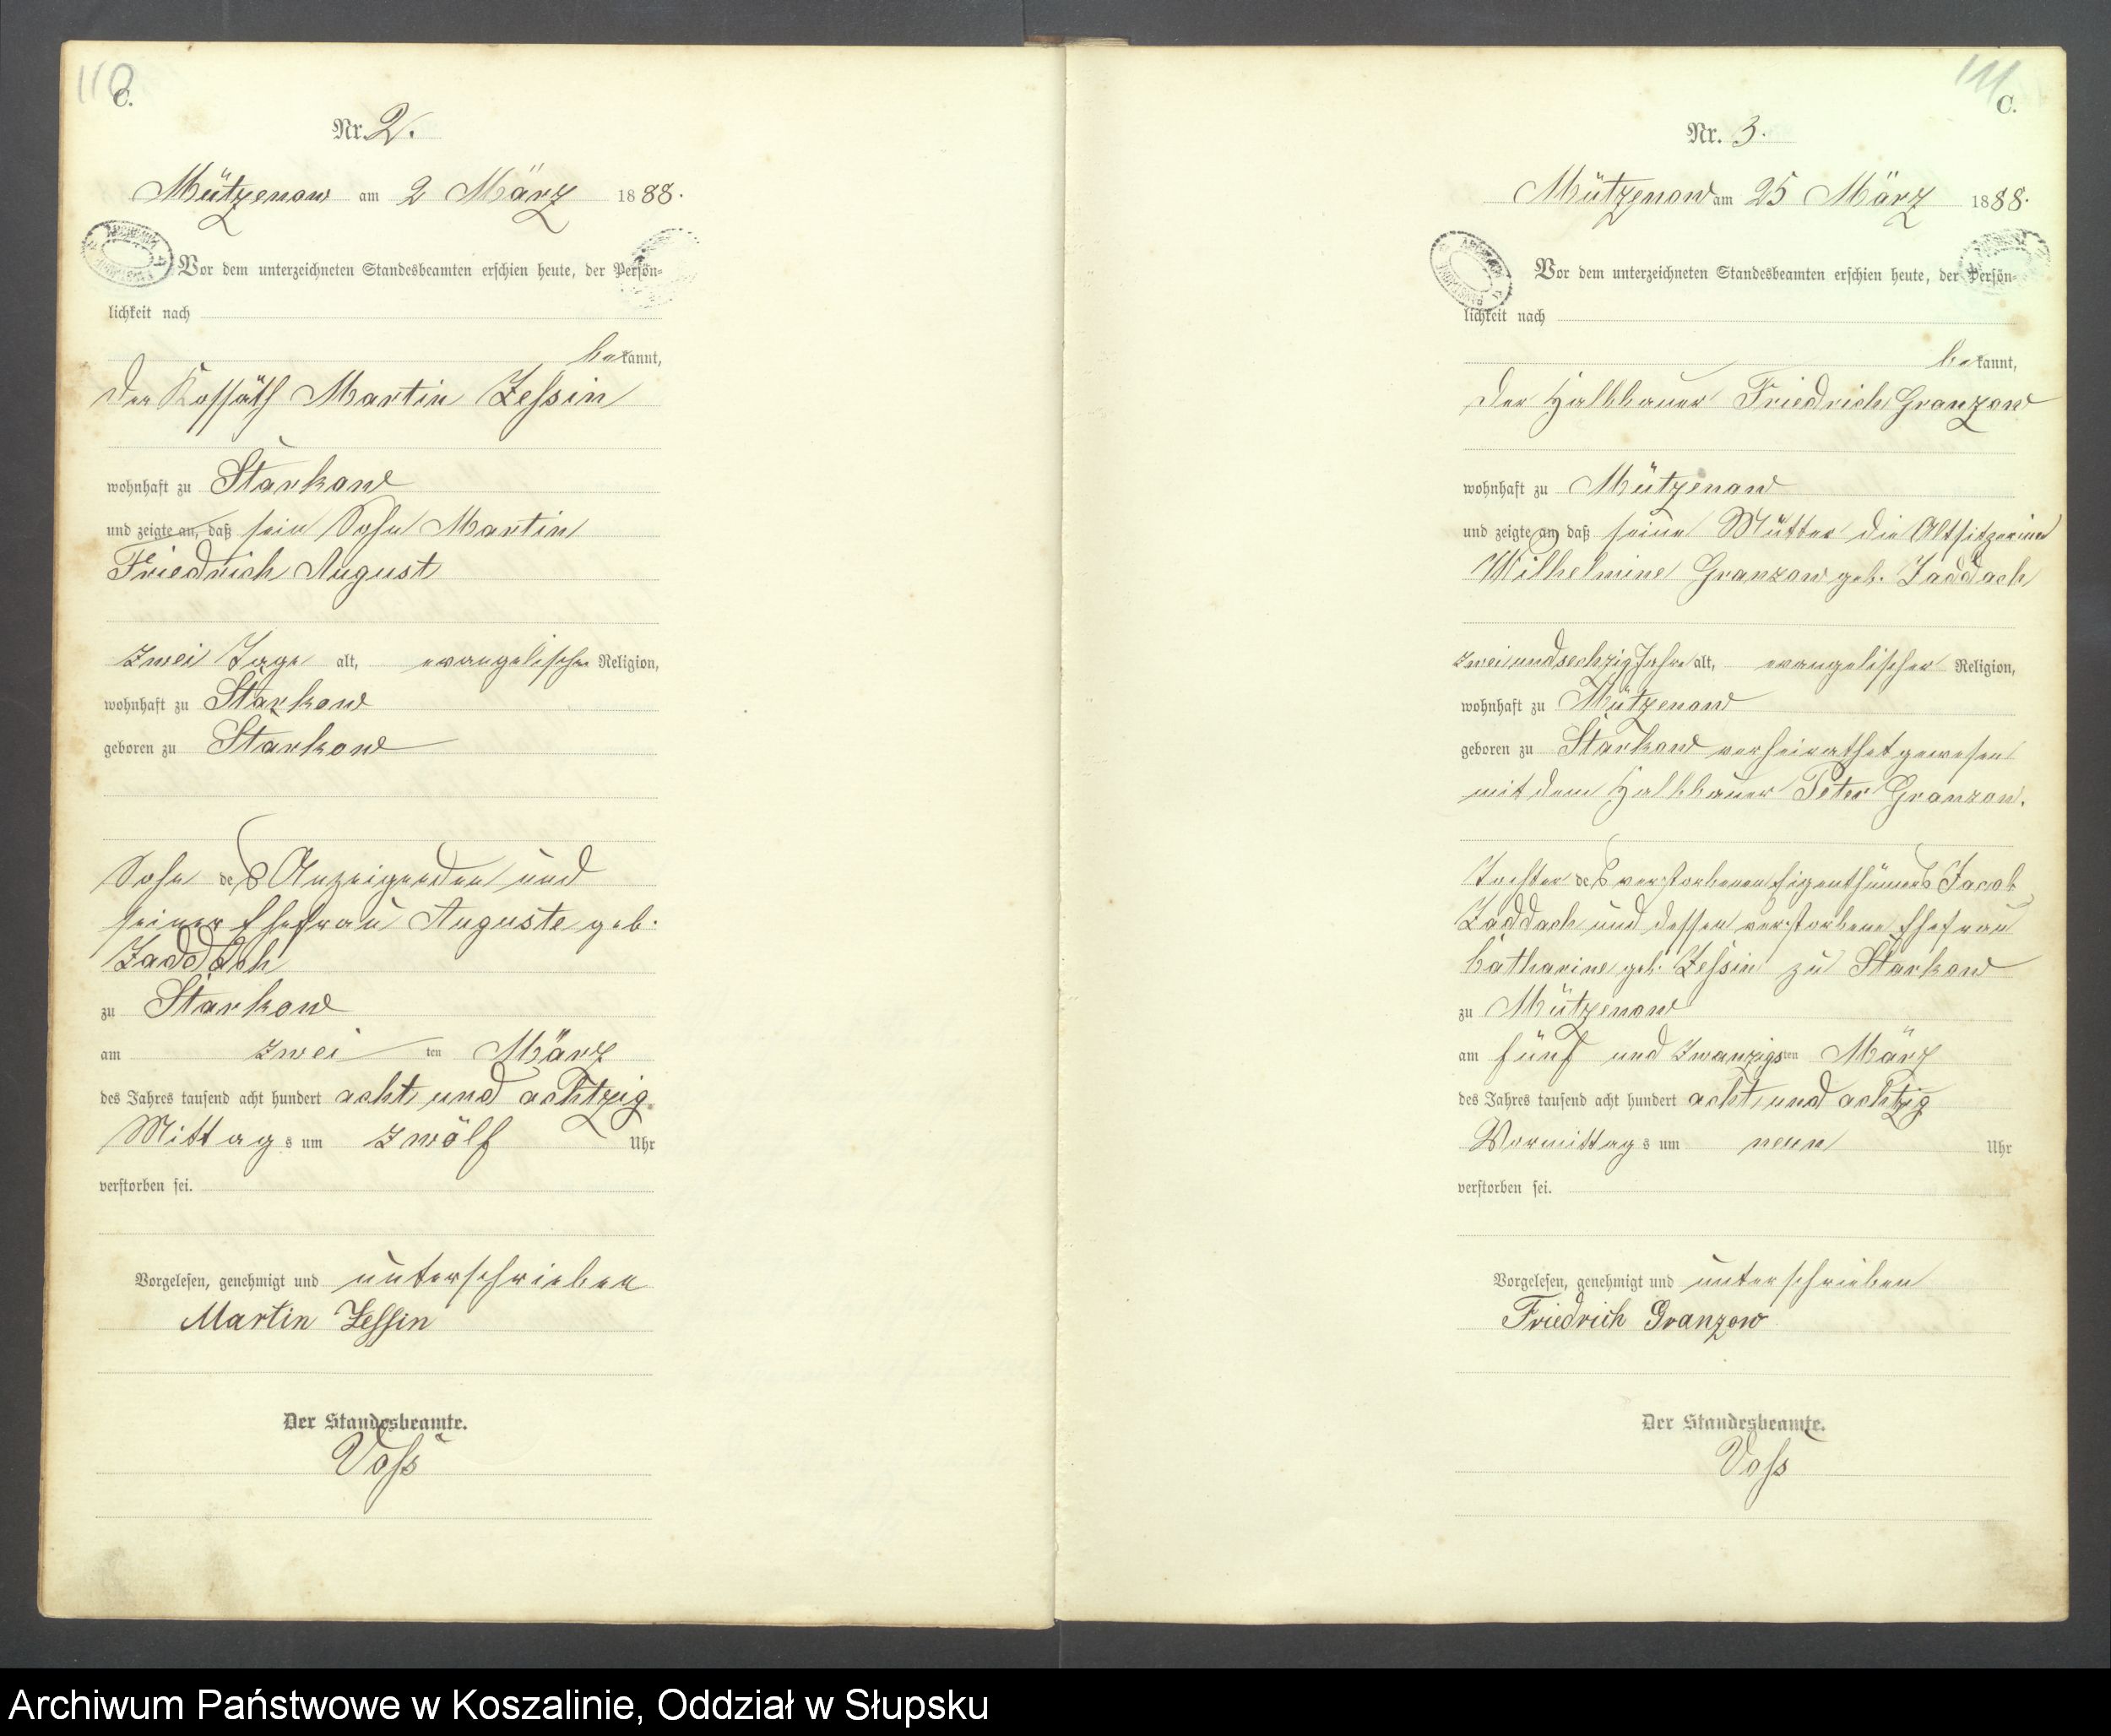 110
C.
Nr. 2.
Mützenow am 2 März 1888.
Vor dem unterzeichneten Standesbeamten erschien heute, der Persön-
lichkeit nach
bekannt,
der Kossäth Martin Zessin
wohnhaft zu Starkow
und zeigte an, daß sein Sohn Martin
Friedrich August
zwei Tage alt, evangelischer Religion,
wohnhaft zu Starkow
geboren zu Starkow
Sohn des Anzeigenden und
seiner Ehefrau Auguste geb.
Zaddach
zu Starkow
am zwei ten März
des Jahres tausend acht hundert acht und achtzig
Mittags um zwölf Uhr
verstorben sei.
Vorgelesen, genehmigt und unterschrieben
Martin Zessin
Der Standesbeamte.
Voss
111
C.
Nr. 3.
Mützenow am 25 März 1888.
Vor dem unterzeichneten Standesbeamten erschien heute, der Persön-
lichkeit nach
bekannt,
der Halbbauer Friedrich Granzow
wohnhaft zu Mützenow
und zeigte an daß seine Mutter die Altsitzerin
Wilhelmine Granzow geb. Zaddach
zwei und sechzig Jahre alt, evangelischer Religion,
wohnhaft zu Mützenow
geboren zu Starkow verheirathet gewesen
mit dem Halbbauer Peter Granzow.
Tochter des verstorbenen Eigenthümers Jacob
Zaddach und dessen verstorbene Ehefrau
Catharine geb. Zessin zu Starkow
zu Mützenow
am fünf und zwanzigsten März
des Jahres tausend acht hundert acht und achtzig
Vormittags um neun Uhr
verstorben sei.
Vorgelesen, genehmigt und unterschrieben
Friedrich Granzow
Der Standesbeamte.
Voss
Archiwum Państwowe w Koszalinie, Oddział w Słupsku